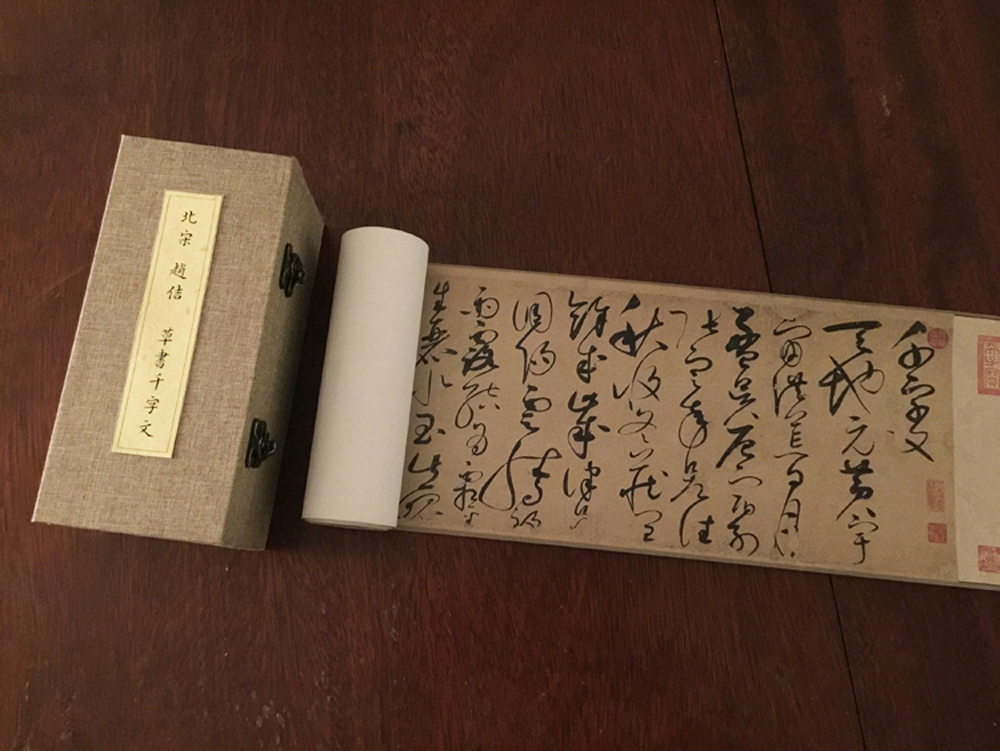 北宋 趙佶 草書千字文
千字文
天地元黃宇
宙洪荒日月
盈昃辰宿列
張寒來暑往
秋收冬藏閏
餘成歲律呂
調陽雲騰致
雨露結為霜金
生麗水玉出